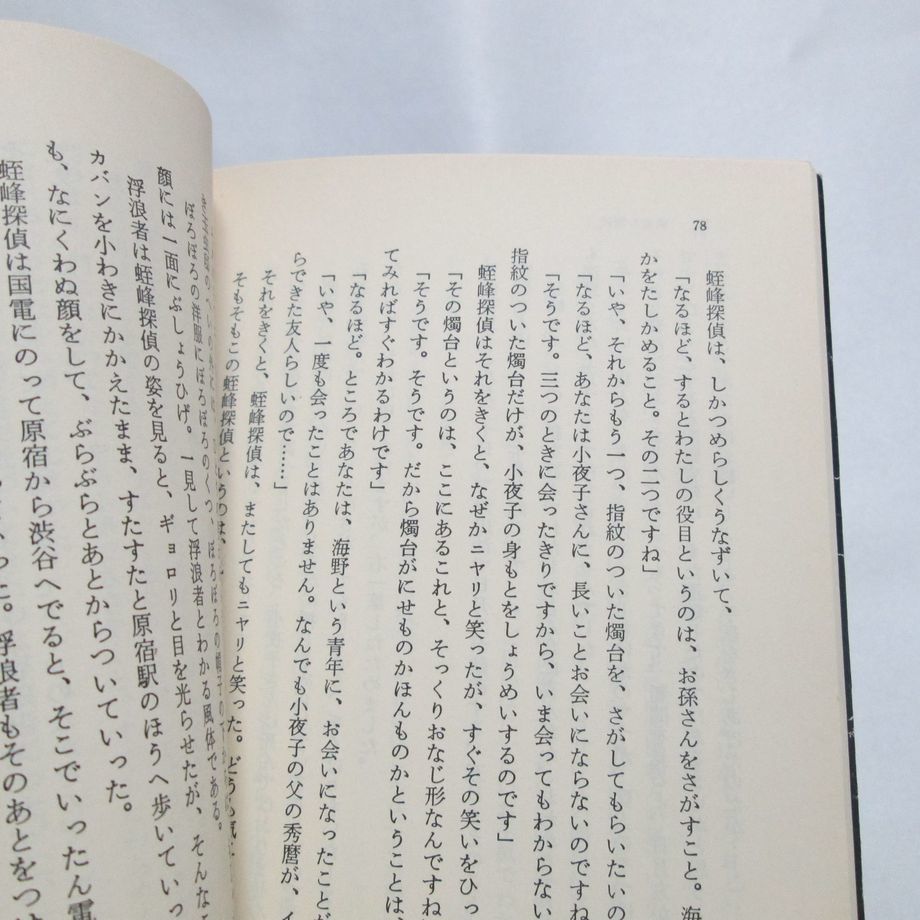 78
蛭峰探偵は、しかつめらしくうなずいて、
「なるほど、するとわたしの役目というのは、お孫さんをさがすこと。海
かをたしかめること。その二つですね」
「いや、それからもう一つ、指紋のついた燭台を、さがしてもらいたいの
「なるほど、あなたは小夜子さんに、長いことお会いにならないのですね
「そうです。三つのときに会ったきりですから、いま会ってもわからない
指紋のついた燭台だけが、小夜子の身もとをしょうめいするのです」
蛭峰探偵はそれをきくと、なぜかニヤリと笑ったが、すぐその笑いをひっ
「その燭台というのは、ここにあるこれと、そっくりおなじ形なんですね
「そうです。そうです。だから燭台がにせものかほんものかということは、
てみればすぐわかるわけです」
「なるほど。ところであなたは、海野という青年に、お会いになったことが
「いや、一度も会ったことはありません。なんでも小夜子の父の秀麿が、イ
らできた友人らしいので……」
それをきくと、蛭峰探偵は、またしてもニヤリと笑った。どうも
そもそもこの蛭峰探偵というのは、
ぼろぼろの洋服にぼろぼろのくつ、ぼろぼろの帽子の
顔には一面にぶしょうひげ。一見して浮浪者とわかる風体である。
浮浪者は蛭峰探偵の姿を見ると、ギョロリと目を光らせたが、そんなこ
カバンを小わきにかかえたまま、すたすたと原宿駅のほうへ歩いていっ
も、なにくわぬ顔をして、ぶらぶらとあとからついていった。
蛭峰探偵は国電にのって原宿から渋谷へでると、そこでいったん電
った。浮浪者もそのあとをつけ